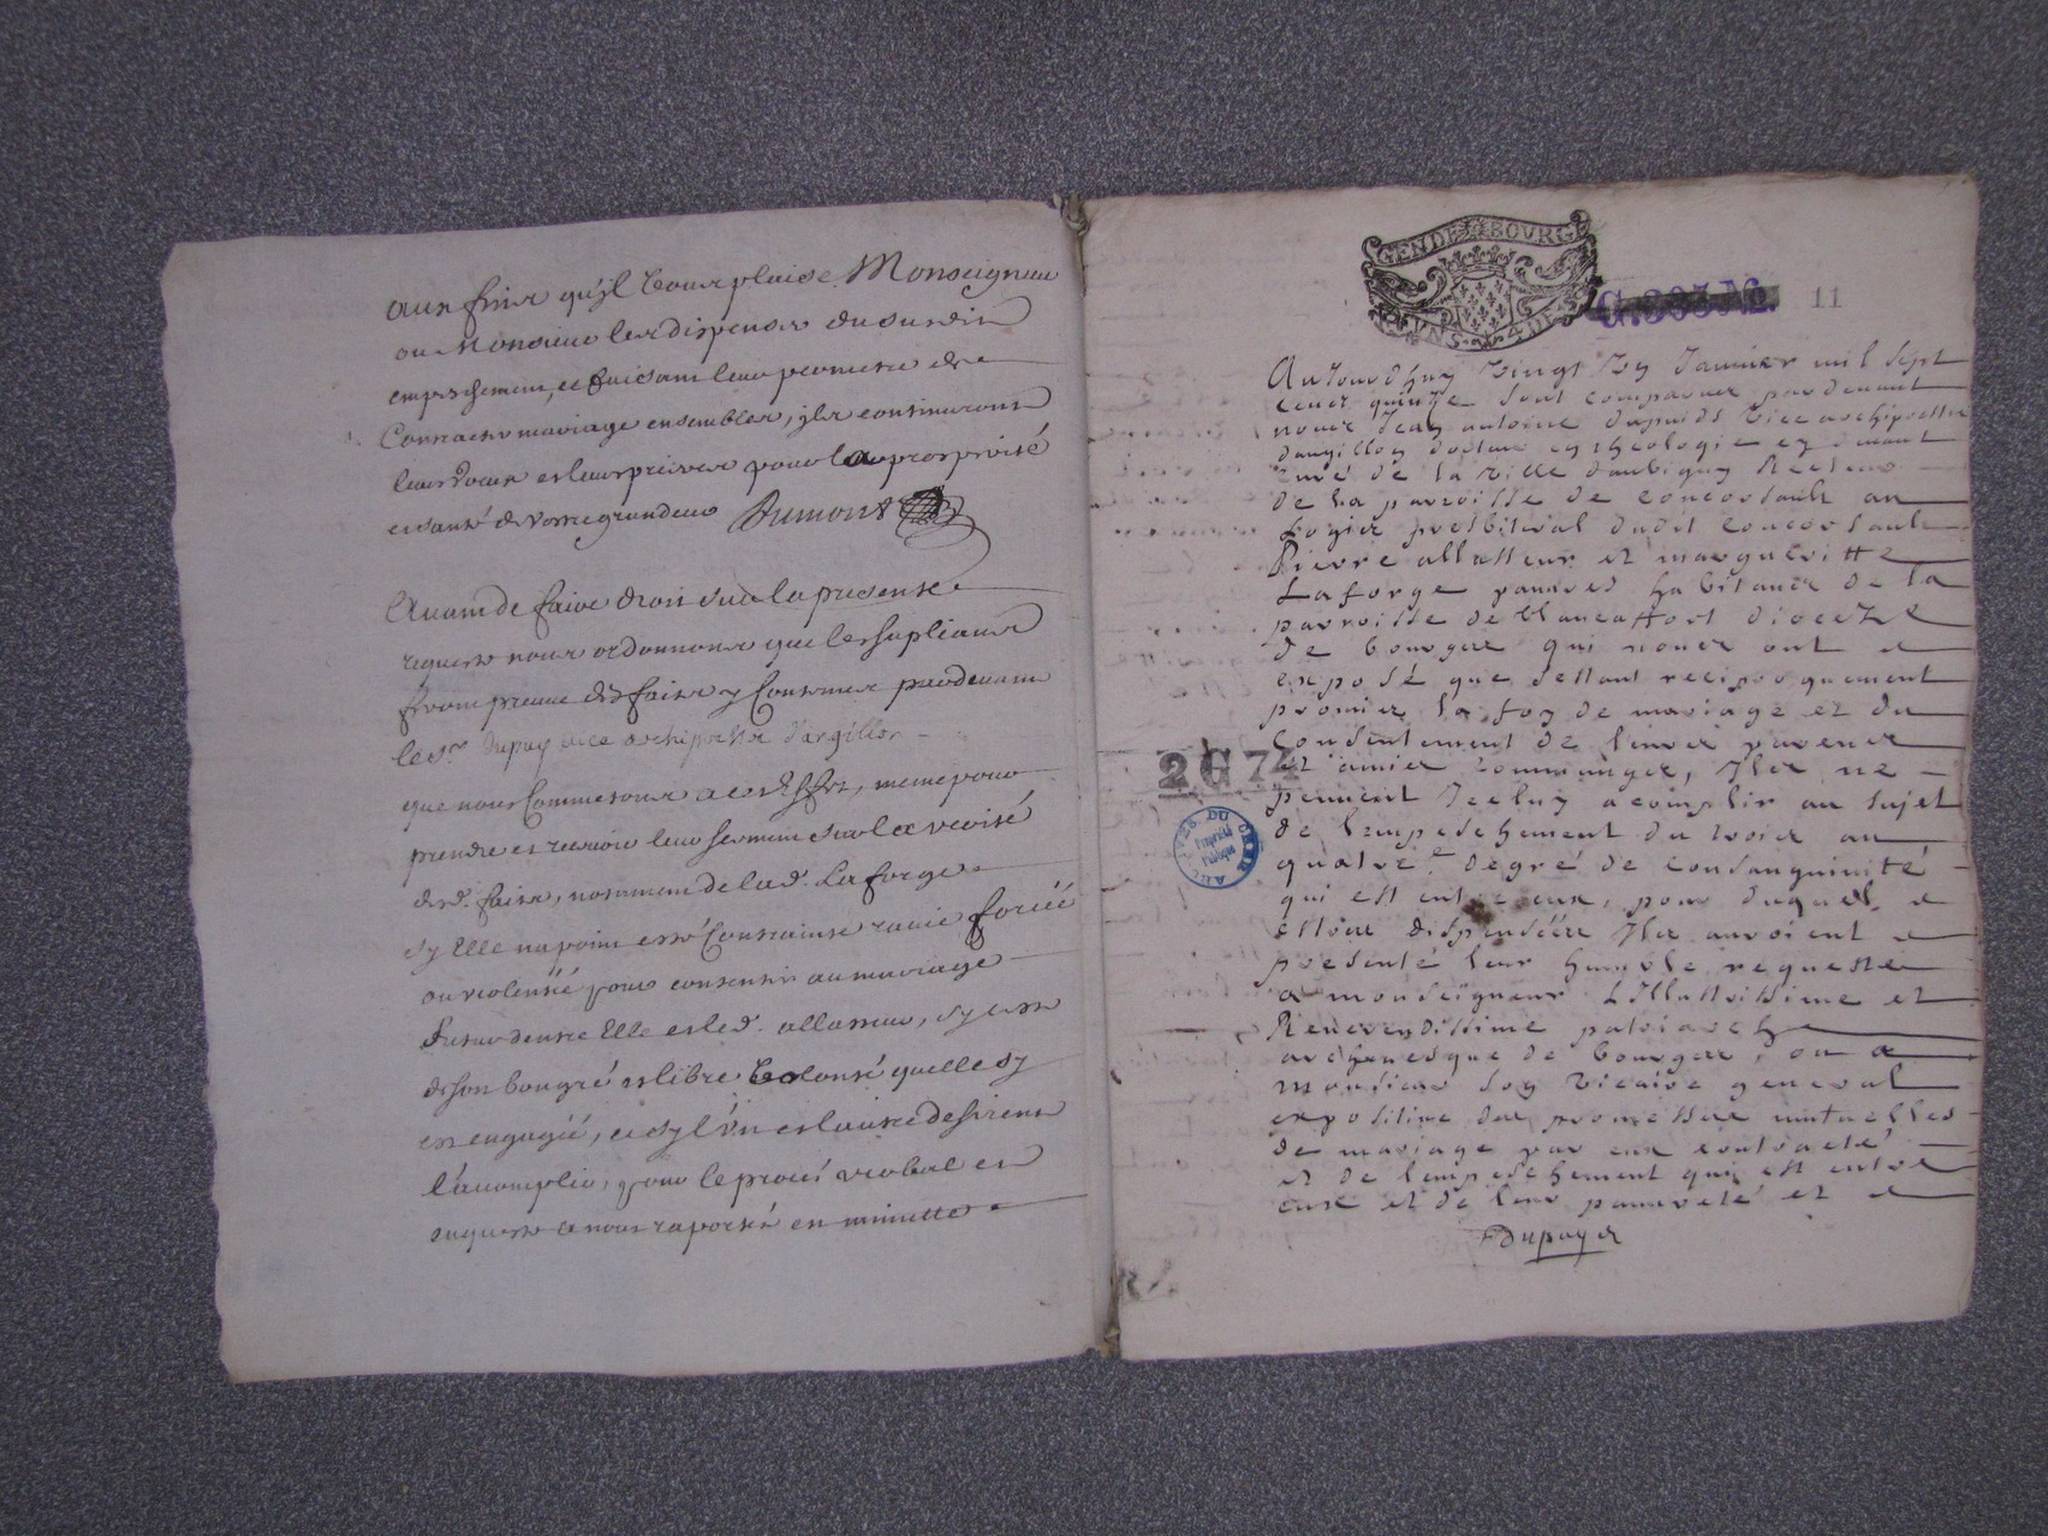 aux fins qu'jl vous plaise Monseigneur
ou Monsieur les dispenser du susdit
empeschement, et suivant leur promesse de
Contracter mariage ensembles, jls continuront
leurs voeux et leurs prieres pour la prosperité
et santé de Vostre grandeur Dumont
Avant de faire droit sur la presente
requeste nous ordonnons que les suplians
feront preuve des faits y Contenus pardevant
le sr. Dupuy vice archiprestre d'argillon
que nous Commetons a cet effet, meme pour
prendre et recevoir leur serment sur la verité
desd. faits, notament de lad. Laforge
sy Elle na point esté Contrainte ravie forcéé
ou violentéé pour consentir au mariage
futur dentre Elle et led. allasseur, sy cest
de son bon gré et libre volonté quelle sy
est engagéé, et sy l'un et lautre desirent
l'acomplir, pour le procé verbal et
enqueste a nous raporté en minutte
GEN DE BOURG
G. 303 No.
11
Aujourdhuy vingt sy Janvier mil sept
cents quinze sont comparus pardevant
nous Jean antoine dupuids vice archiprestre
dangillon docteur en theologie cy devant
curé de la ville daubigny Recteur
de la parroisse de concorsault au
Logis presbiteral dudit concorsault
Pierre allasseur et margueritte
Laforge pauvres habitans de la
parroisse de blancaffort dioceze
de bourges qui nous ont
exposé que sestant reciproquement
promis la foy de mariage et du
consentement de leurs parens
et amis communs, Ils ne
peuvent Jceluy acomplir au sujet
de lempeschement du trois au
quatre e degré de consanguinité
qui est entre eux, pour duquel
estre dispenséés Ils auroient
presenté leur humble requeste
a monseigneur Lillustrissime et
Reverendissime patriarch
archevesque de bourges, ou a
monsieur son vicaire general
expositive des promesses mutuelles
de mariage par eux contracté
et de lempeschement qui est entre
eux et de leur pauvreté et
Dupuyds
2 G 74
ARCHIVES DU CHER
Propriété
Publique